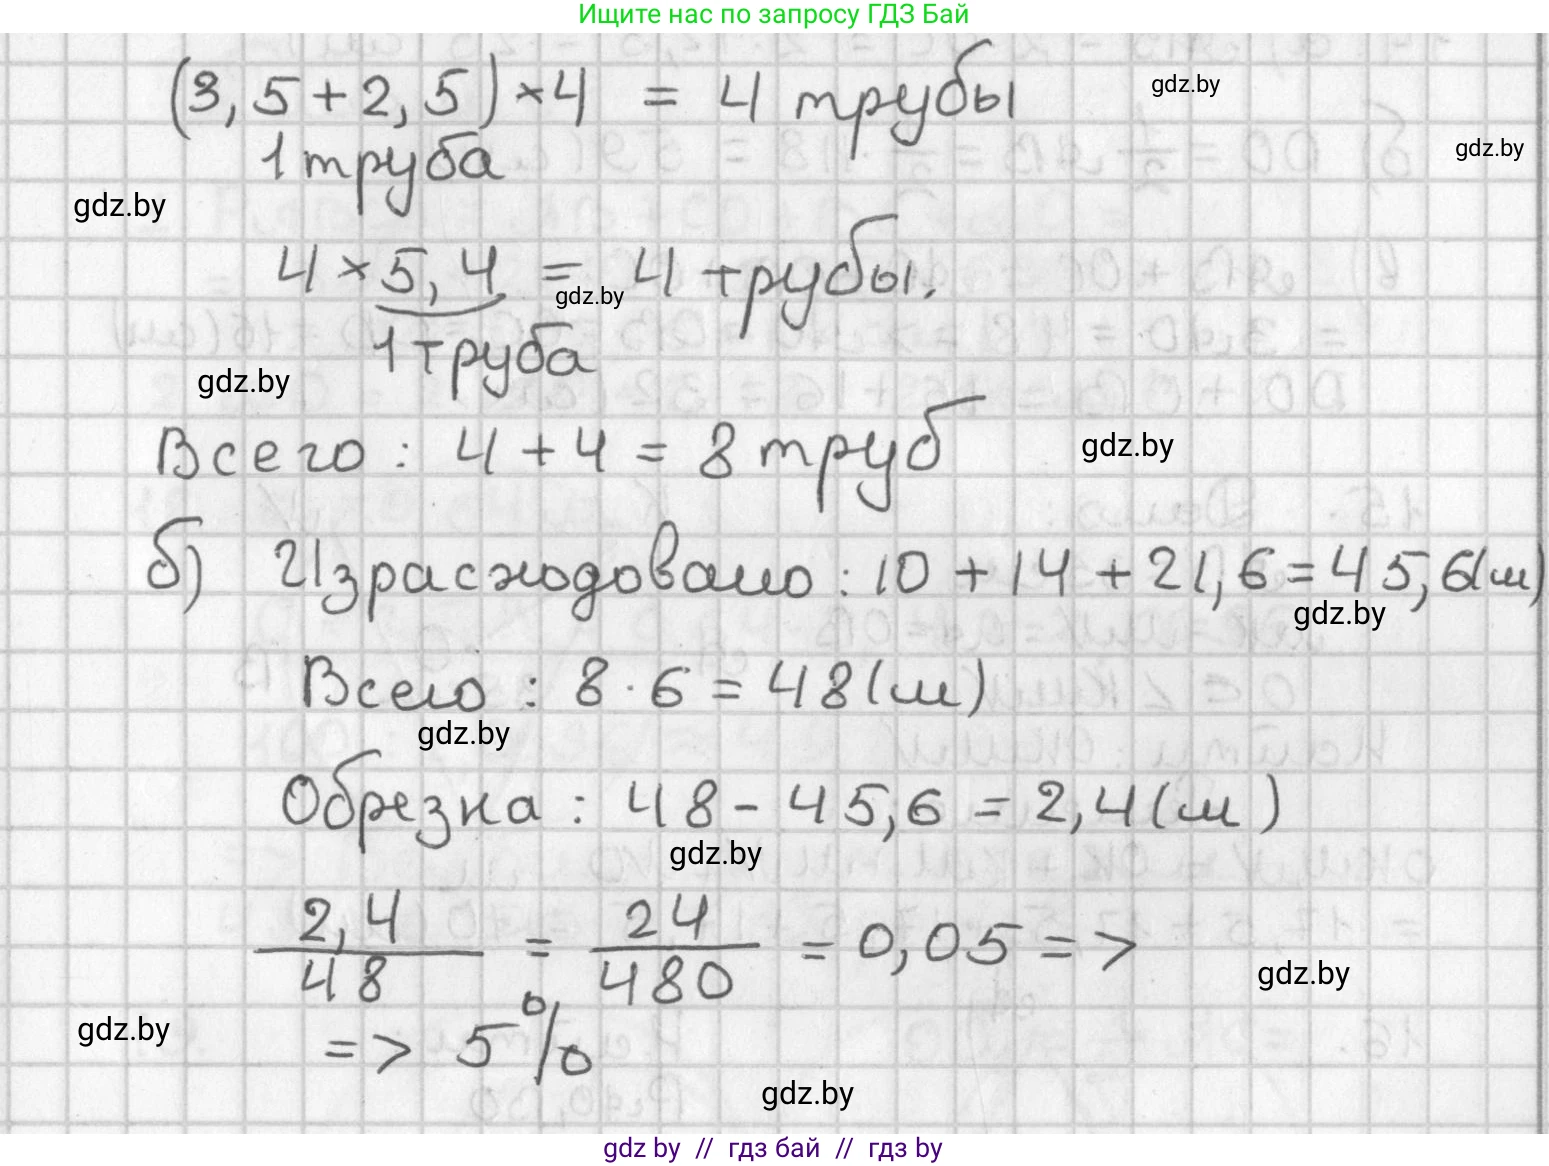 Ищите нас по запросу ГДЗ Бай
(3,5+2,5)×4 = 4 трубы
gdz.by
1 труба
gdz.by
gdz.by
4×5,4 = 4 трубы.
gdz.by
1 труба
gdz.by
Всего: 4+4=8 труб
gdz.by
б) Израсходовано: 10+14+21,6=45,6(м)
gdz.by
Всего: 8·6=48(м)
gdz.by
Обрезка: 48-45,6=2,4(м)
gdz.by
2,4/48 = 24/480 = 0,05 =>
gdz.by
=> 5%
gdz.by
gdz.by
gdz by // гдз бай // гдз by